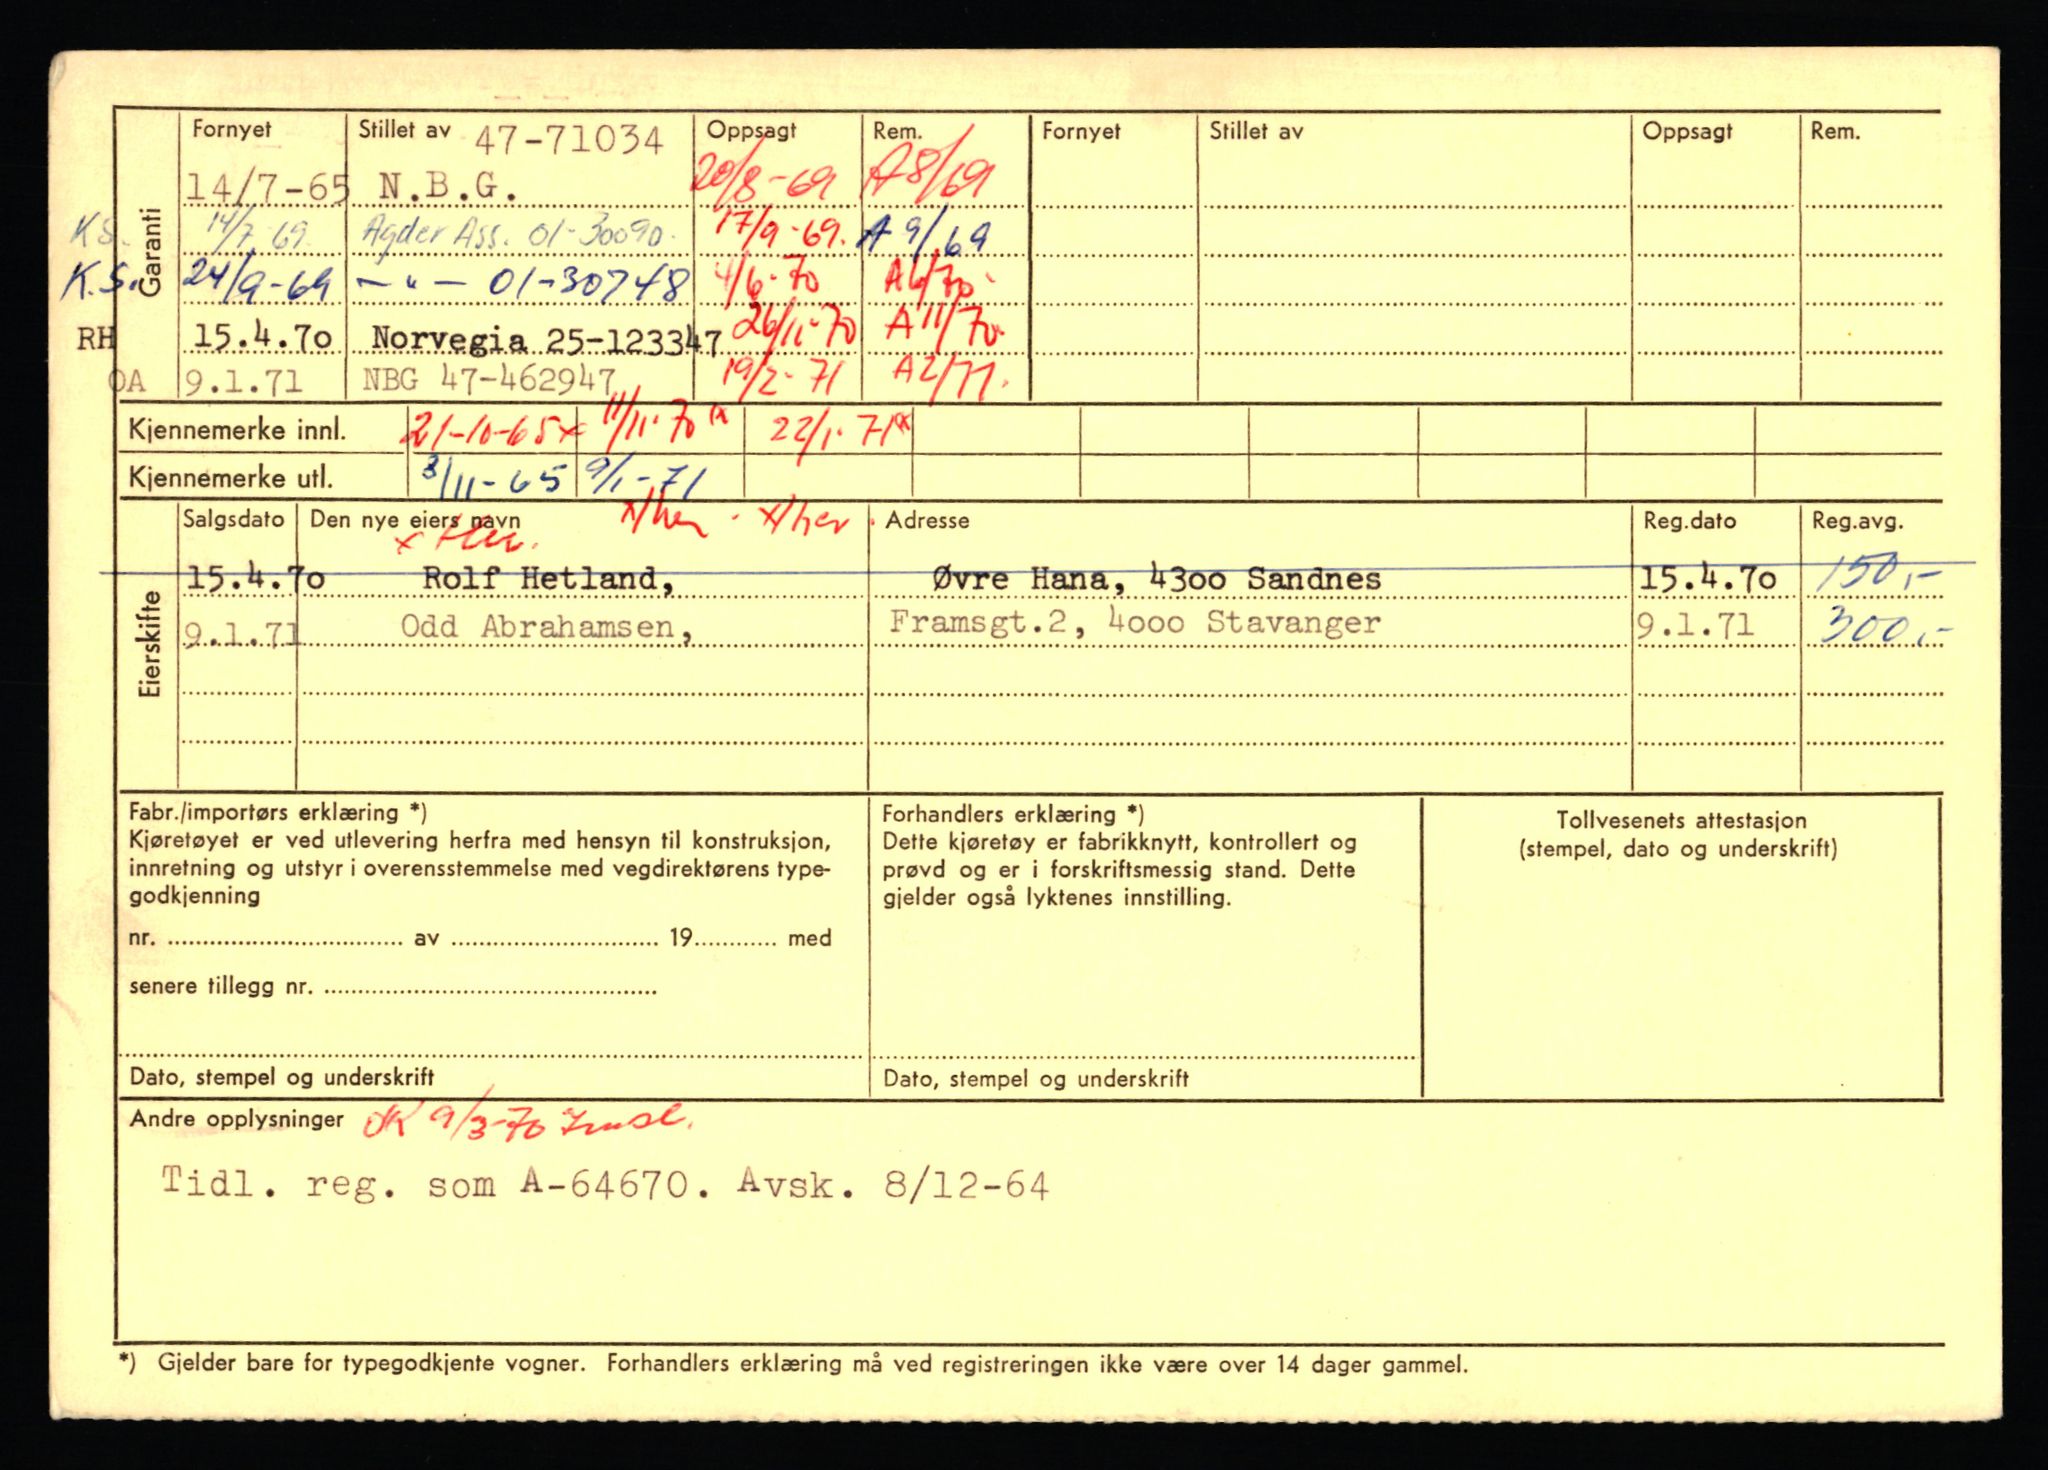 Fornyet Stillet av 47-71034 Oppsagt Rem. Fornyet Stillet av Oppsagt Rem.
Garanti
14/7-65 N.B.G. 20/8-69 A8/69
KS. 14/7-69. Agder Ass. 01-30090. 17/9-69. A 9/69
K.S. 24/9-69 — " — 01-30748 4/6-70 A6/70.
RH 15.4.70 Norvegia 25-123347 26/11-70 A 11/70.
OA 9.1.71 NBG 47-462947 19/2-71 A2/71.
Kjennemerke innl. 21-10-65x 11/11-70 x 22/1-71 x
Kjennemerke utl. 3/11-65 9/1-71
Eierskifte
Salgsdato Den nye eiers navn x/her. x/her. Adresse Reg.dato Reg.avg.
x Her.
15.4.70 Rolf Hetland, Øvre Hana, 4300 Sandnes 15.4.70 150,-
9.1.71 Odd Abrahamsen, Framsgt.2, 4000 Stavanger 9.1.71 300,-
Fabr./importørs erklæring *)
Kjøretøyet er ved utlevering herfra med hensyn til konstruksjon,
innretning og utstyr i overensstemmelse med vegdirektørens type-
godkjenning
nr. av 19 med
senere tillegg nr.
Dato, stempel og underskrift
Forhandlers erklæring *)
Dette kjøretøy er fabrikknytt, kontrollert og
prøvd og er i forskriftsmessig stand. Dette
gjelder også lyktenes innstilling.
Dato, stempel og underskrift
Tollvesenets attestasjon
(stempel, dato og underskrift)
Andre opplysninger OK 9/3-70
Tidl. reg. som A-64670. Avsk. 8/12-64
*) Gjelder bare for typegodkjente vogner. Forhandlers erklæring må ved registreringen ikke være over 14 dager gammel.